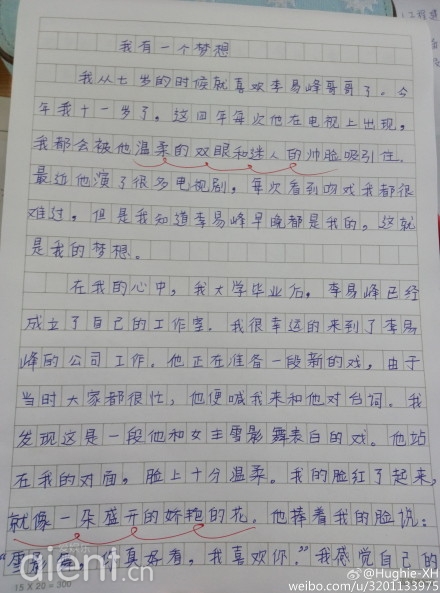 我有一个梦想
我从七岁的时候就喜欢李易峰哥哥了。今
年我十一岁了。这四年每次他在电视上出现，
我都会被他温柔的双眼和迷人的帅脸吸引住。
最近他演了很多电视剧，每次看到吻戏我都很
难过，但是我知道李易峰早晚都是我的，这就
是我的梦想。
在我的心中，我大学毕业后，李易峰已经
成立了自己的工作室。我很幸运的来到了李易
峰的公司工作。他正在准备一段新的戏，由于
当时大家都很忙，他便喊我来和他对台词。我
发现这是一段他和女主雪影舞表白的戏。他站
在我的对面，脸上十分温柔。我的脸红了起来，
就像一朵盛开的娇艳的花。他捧着我的脸说：
“雪影 你真好看，我喜欢你。”我感觉自己的
15×20=300
dient.cn
@Hughie-XH
weibo.com/u/3201133975